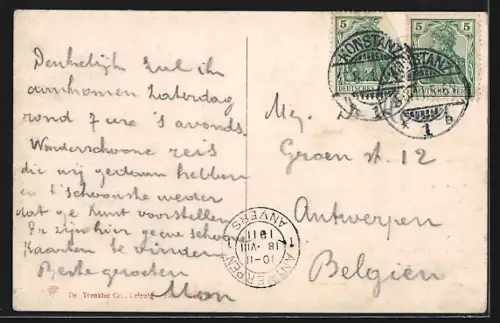 5
5
DEUTSCHES REICH
KONSTANZ
KONSTANZ
1 b
Denkelijk zal ik
aankomen Zaterdag
rond 7 ure 's avonds.
Wonderschoone reis
die wij gedaan hebben
en 't schoonste weder
dat ge kunt voorstellen
Er zijn hier geene schoone
Kaarten te vinden
Beste groeten
Groen st. 12
Antwerpen
Belgien
ANTWERPEN 1
10-11
18 VIII
1911
1 ANVERS
Leipzig